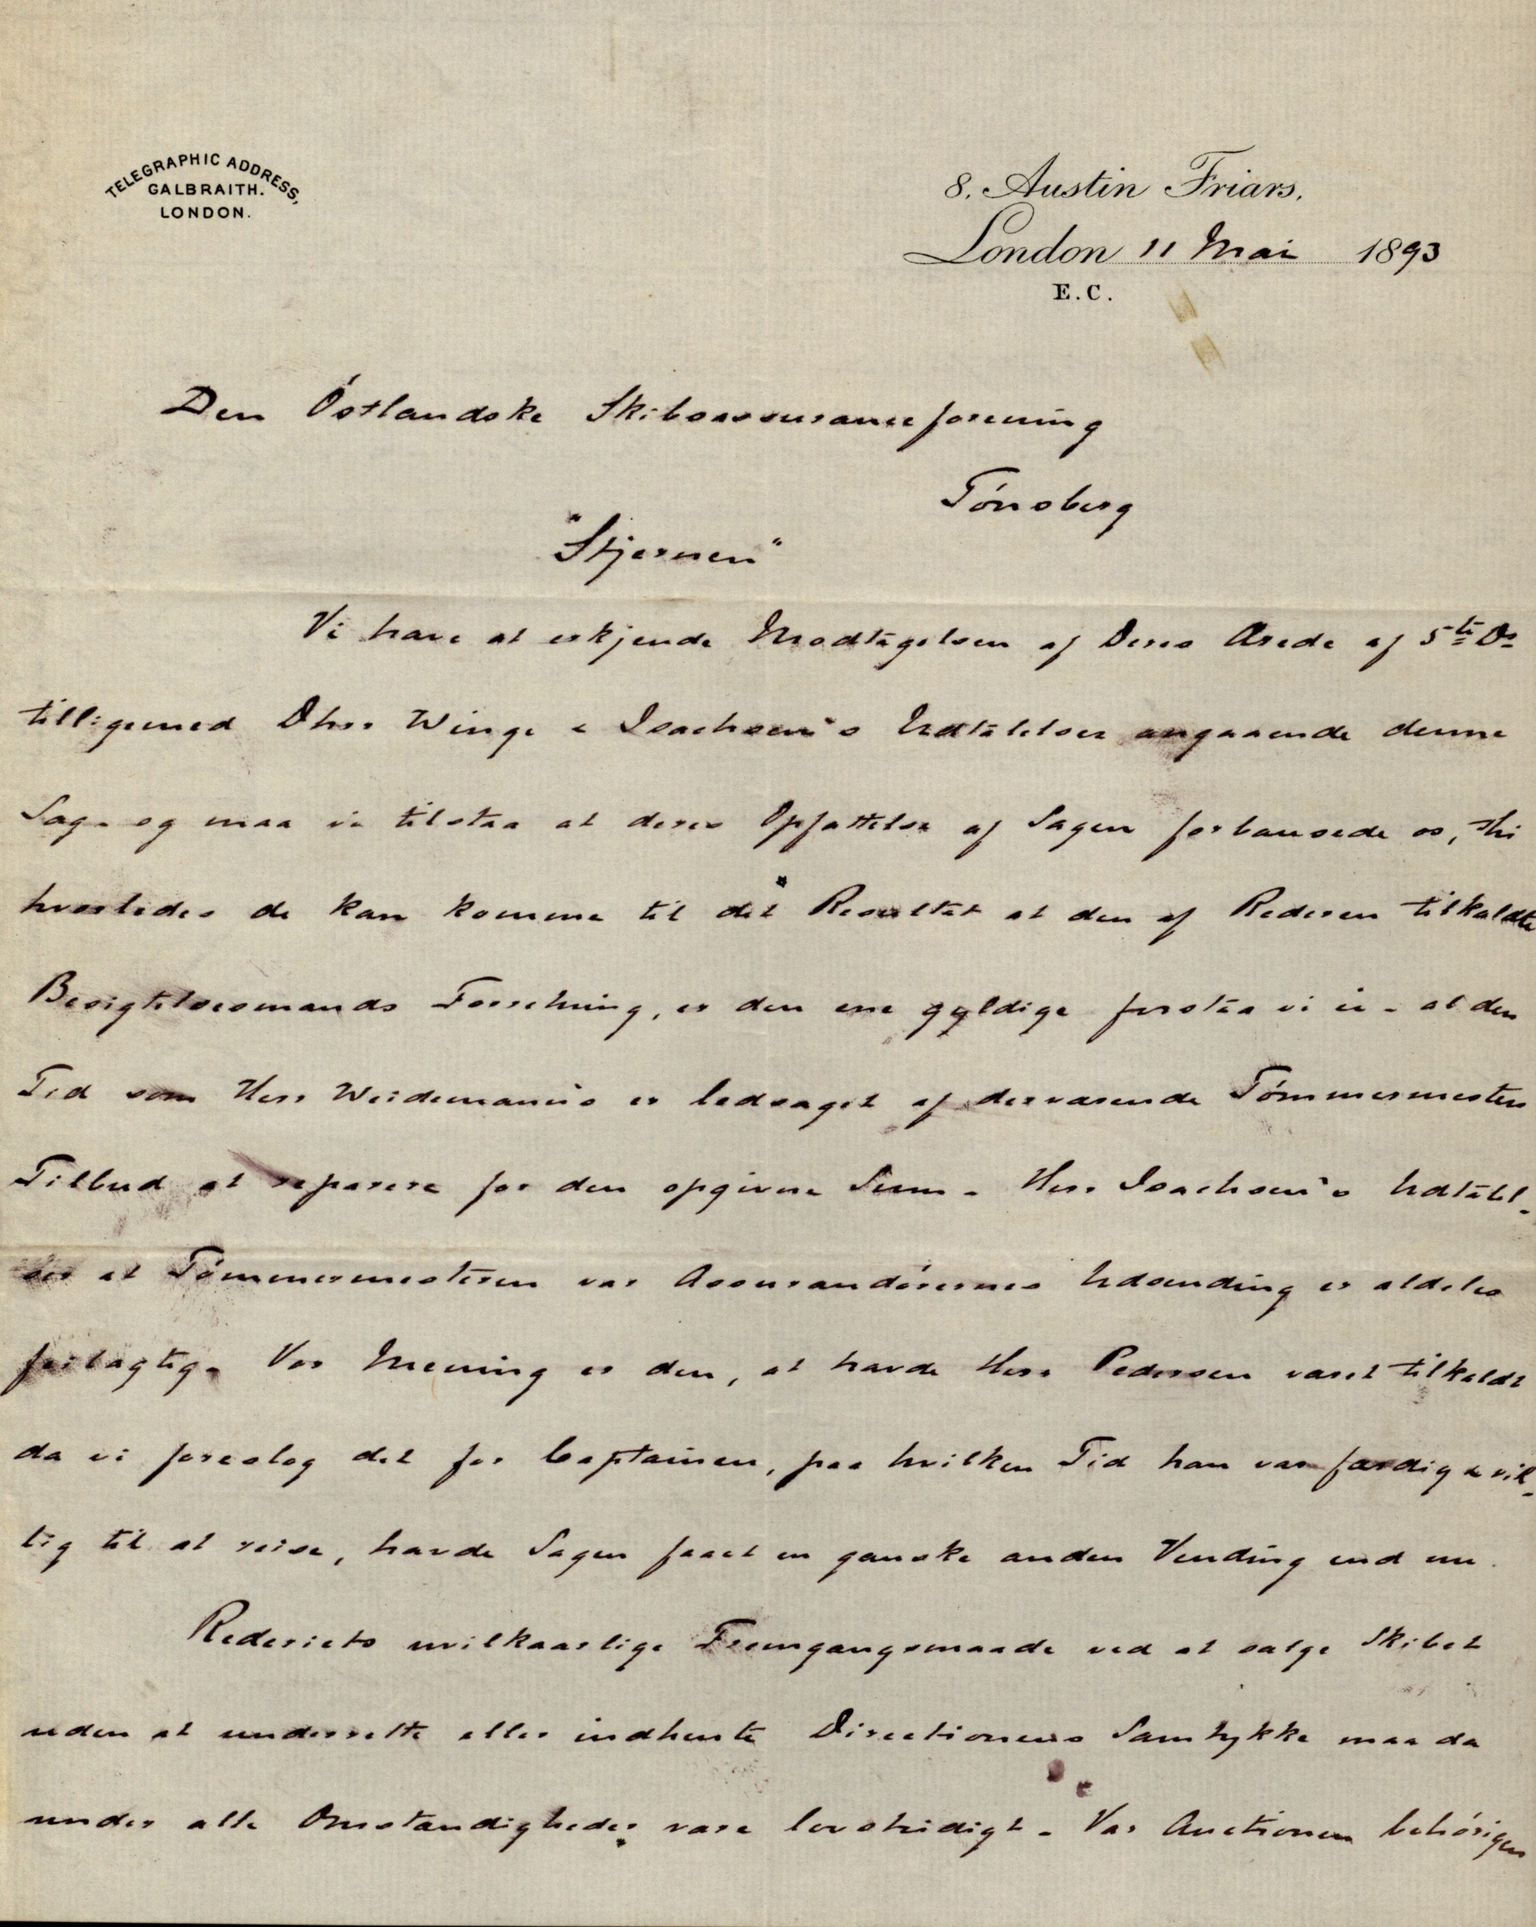 TELEGRAPHIC ADDRESS,
GALBRAITH.
LONDON.
8, Austin Friars,
London 11 Mai 1893
E.C.
Den Östlandske Skibsassuranceforening
Tönsberg
"Stjernen"
Vi have at erkjende Modtagelsen af Deres Ærede af 5te Ds
tilligemed Dhrr Winge & Isachsen's Udtalelser angaaende denne
Sag - og maa vi tilstaa at deres Opfattelse af Sagen forbausede os, thi
hvorledes de kan komme til det Resultat at den af Rederen tilkaldte
Besigtelsesmands Forretning, er den ene gyldige forstaa vi ei - al den
Tid som Herr Weidemann's er ledsaget af derværende Tömmermesters
Tilbud at reparere for den opgivne Sum - Herr Isachsen's Udtalel-
ser at Tömmermesteren var Assurandörernes Udsending er aldeles
feilagtig - Vor Mening er den, at havde Herr Pedersen været tilkaldt
da vi foreslog det for Captainen, paa hvilken Tid han var færdig & vil-
lig til at reise, havde Sagen faaet en ganske anden Vending end nu.
Rederiets uvilkaarlige Fremgangsmaade ved at sælge Skibet
uden at underrette eller indhente Directionens Samtykke maa da
under alle Omstændigheder være lovstridigt - Var Auctionen behörigen